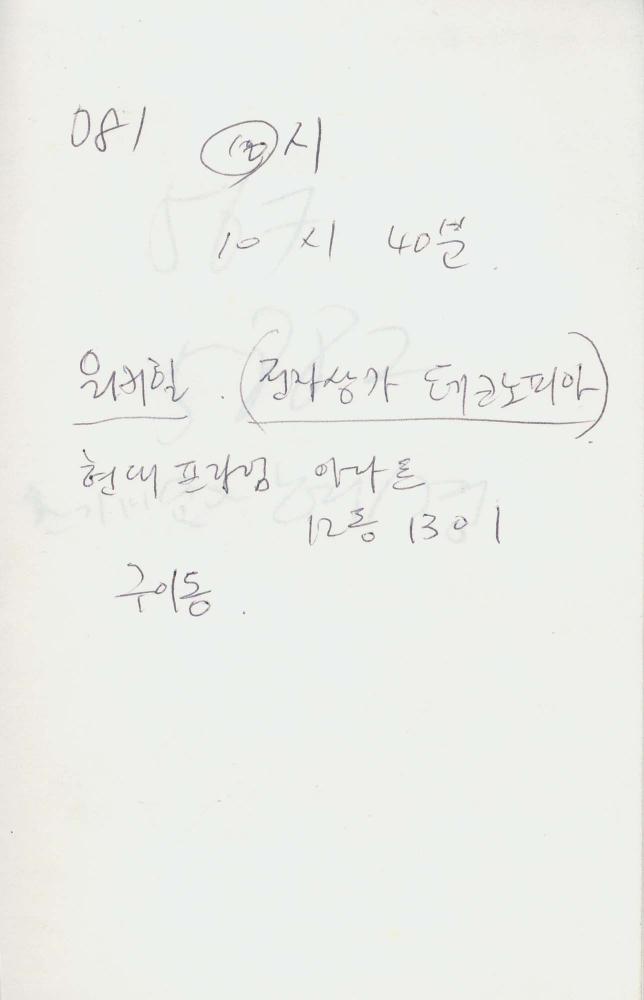 081 10시
10시 40분.
워커힐. (전자상가 테크노피아)
현대 프라임 아파트
12동 1301
구이동.